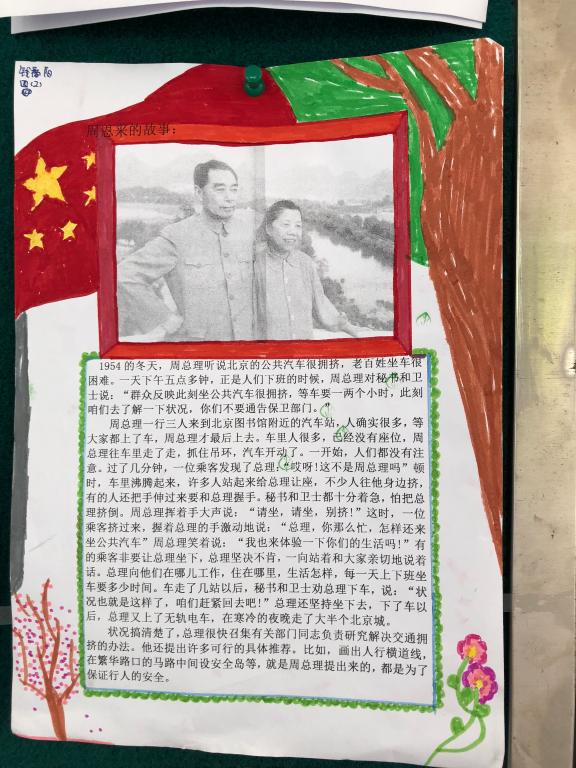 四(2)
周恩来的故事：
1954 的冬天，周总理听说北京的公共汽车很拥挤，老百姓坐车很
困难。一天下午五点多钟，正是人们下班的时候，周总理对秘书和卫
士说：“群众反映此刻坐公共汽车很拥挤，等车要一两个小时，此刻
咱们去了解一下状况，你们不要通告保卫部门。”
周总理一行三人来到北京图书馆附近的汽车站，人确实很多，等
大家都上了车，周总理才最后上去。车里人很多，已经没有座位，周
总理往车里走了走，抓住吊环，汽车开动了。一开始，人们都没有注
意。过了几分钟，一位乘客发现了总理：“哎呀！这不是周总理吗”顿
时，车里沸腾起来，许多人站起来给总理让座，不少人往他身边挤，
有的人还把手伸过来要和总理握手。秘书和卫士都十分着急，怕把总
理挤倒。周总理挥着手大声说：“请坐，请坐，别挤！”这时，一位
乘客挤过来，握着总理的手激动地说：“总理，你那么忙，怎样还来
坐公共汽车”周总理笑着说：“我也来体验一下你们的生活吗！”有
的乘客非要让总理坐下，总理坚决不肯，一向站着和大家亲切地说着
话。总理向他们在哪儿工作，住在哪里，生活怎样，每一天上下班坐
车要多少时间。车走了几站以后，秘书和卫士劝总理下车，说：“状
况也就是这样了，咱们赶紧回去吧！”总理还坚持坐下去，下了车以
后，总理又上了无轨电车，在寒冷的夜晚走了大半个北京城。
状况搞清楚了，总理很快召集有关部门同志负责研究解决交通拥
挤的办法。他还提出许多可行的具体推荐。比如，画出人行横道线，
在繁华路口的马路中间设安全岛等，就是周总理提出来的，都是为了
保证行人的安全。